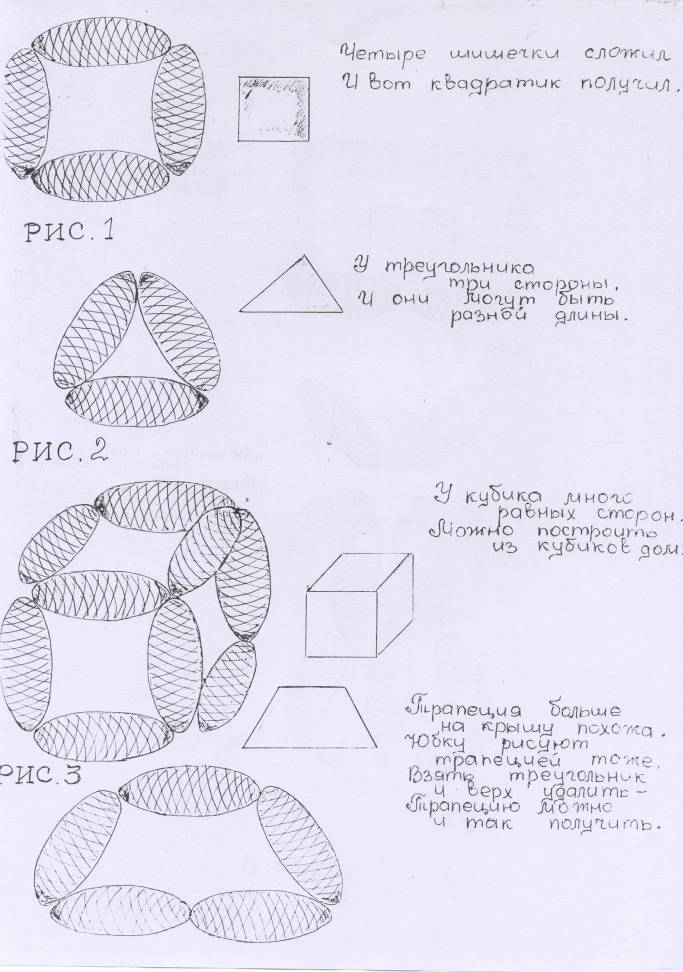 Четыре шишечки сложил
И вот квадратик получил.
РИС.1
У треугольника
три стороны,
И они могут быть
разной длины.
РИС.2
У кубика много
равных сторон.
Можно построить
из кубиков дом.
Трапеция больше
на крышу похожа.
Юбку рисуют
трапецией тоже.
Взять треугольник
и верх удалить –
Трапецию можно
и так получить.
РИС.3